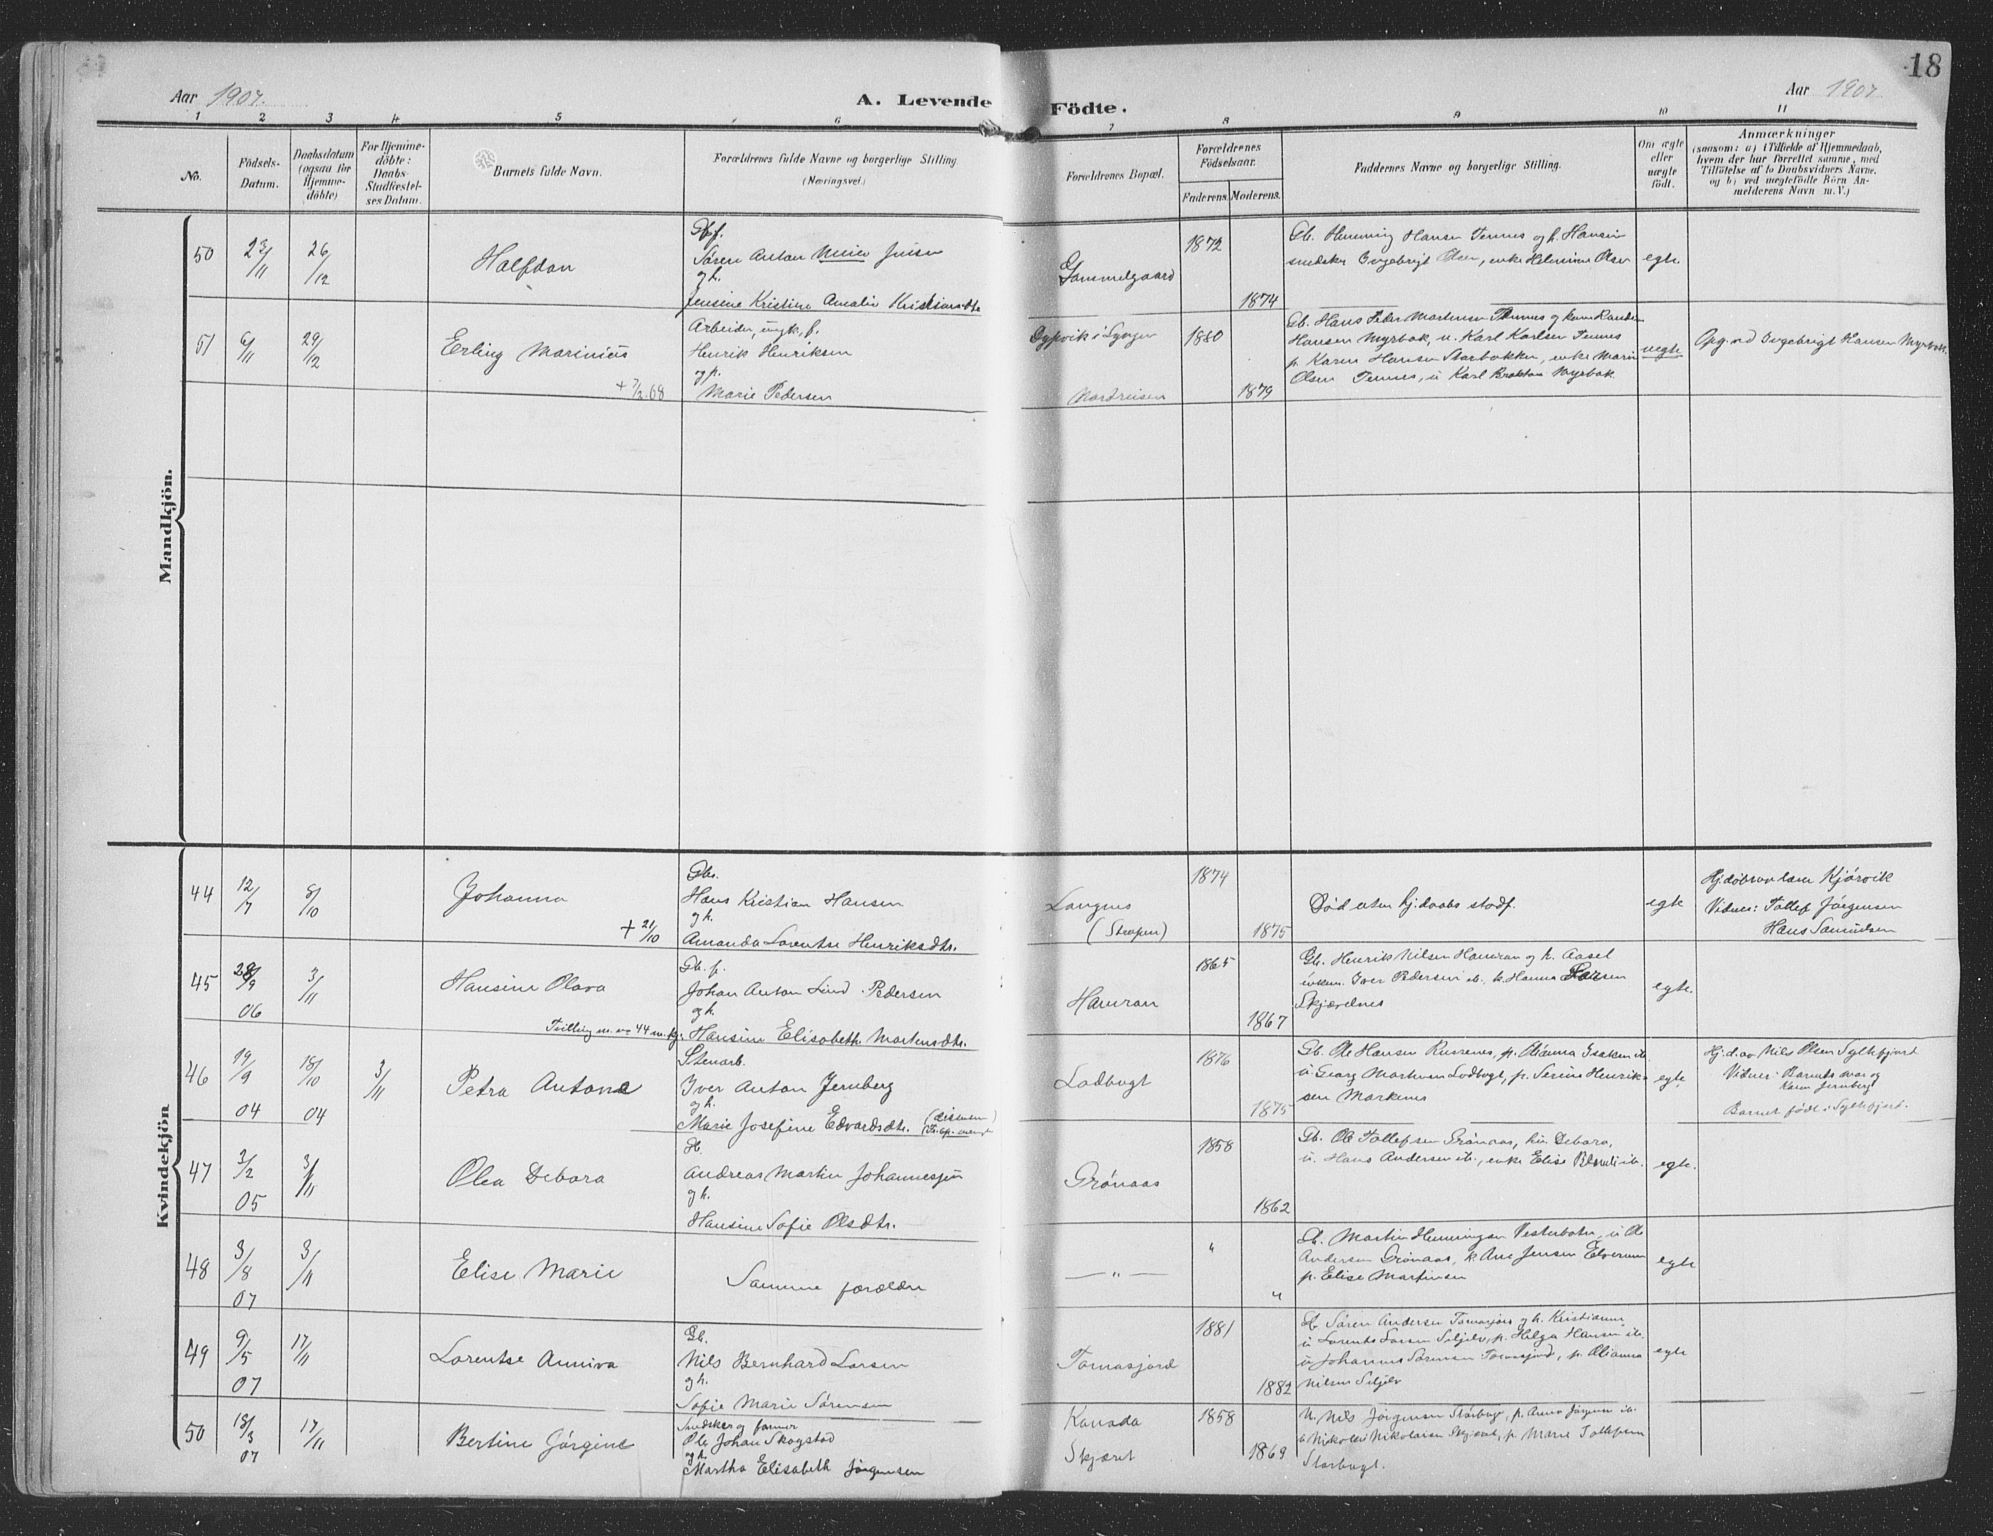 18
Aar 1907.
A. Levende Födte.
Aar 1907.
1 2 3 4 5 6 7 8 9 10 11
No.
Födsels-Datum.
Daabsdatum (ogsaa for Hjemmedöbte)
For Hjemmedöbte: Daabs-Stadfæstelses Datum.
Barnets fulde Navn.
Forældrenes fulde Navne og borgerlige Stilling. (Næringsvei.)
Forældrenes Bopæl.
Forældrenes Födselsaar.
Faderens. Moderens.
Faddernes Navne og borgerlige Stilling.
Om ægte eller uægte födt.
Anmærkninger
(saasom: a) i Tilfælde af Hjemmedaab,
hvem der har forrettet samme, med
Tilföielse af to Daabsvidners Navne,
og b) ved uægtefödte Börn An-
melderens Navn m.V.)
Mandkjön.
50 23/11 26/12 Halfdan
Gbf.
Søren Anton Meier Jensen
og h.
Jensine Kristine Amalie Kristiansdtr
Gammelgaard 1872 1874
Gb. Henning Hansen Tennes og h. Hansine
snedsker Ingebrigt Olsen, enke Helmine Olsen
egte.
51 6/11 29/12 Erling Marinius
+ 7/2.68
Arbeider, ungk, f.
Henrik Henriksen
og p.
Marie Pedersen
Dypvik i Lyngen 1880
Nordreisen 1879
Gb. Hans Peder Mortensen Tennes og kone
Hansen Myrbak, u. Karl Karlsen Tennes
p. Karen Hansen Storbakken, enke Marie
Olsen Tennes, u Karl Myrbak
uegte
Opg. ved Ingebrigt Hansen Myrbak.
Kvindekjön
44 12/7 8/10 Johanna
+ 21/10
Gb.
Hans Kristian Hansen
og h.
Amanda Lorentse Henriksdtr.
Langnes 1874
1875
Død uten hj.daabs stadf.
egte
Hj.døbt av lærer Kjørvik
Vidner: Tollef Jørgensen
Hans Samuelsen
45 28/9 06 3/11 Hansine Olava
Tvilling m. no 44 m.kj.
Gb. f.
Johan Anton Lind Pedersen
og h.
Hansine Elisabeth Martensdtr.
Hamran 1865
1867
Gb. Henrik Nilsen Hamran og h. Aasel
ungkm. Iver Pedersen ib. h. Hanna Larsen
Skjævelnes
egte.
46 19/9 04 18/10 04 3/11 Petra Antone
Stenarb.
Iver Anton Jernberg
og h.
Marie Josefine Edvardsdtr.
Lodbugt 1876
1875
Gb. Ole Hansen Russenes, p. Olianna Isaksen ib.
u Georg Martinsen Lodbugt, p. Serine Henrik-
sen Markenes
egte.
Hj.d. av Nils Olsen Syltefjord
Vidner: Barnets mor og
Karen Jernberg
Barnet født i Syltefjord.
47 3/2 05 3/11 Olea Debora
H.
Andreas Martin Johannesjen
og h.
Hansine Sofie Olsdtr.
Grønaas 1858
1862
Gb. Ole Tollefsen Grønaas, h. Debora,
u. Hans Andersen ib., enke Elise
egte.
48 3/8 07 3/11 Elise Marie
Samme forældre
— " — " "
Gb. Martin Henningsen Vesterbotn, u Ole
Andersen Grønaas, k. Ane Jensen Elverum
p. Elise Martinsen
egte
49 9/5 07 17/11 Lorentse Anniva
Gb.
Nils Bernhard Larsen
og h.
Sofie Marie Sørensen
Tomasjord 1881
1882
Gb Søren Andersen Tomasjord og h. Kristianna
u Lorents Larsen Seljelv, p. Helga Hansen ib.
u Johannes Sørensen Tomasjord, p. Olianna
Nilsen Seljelv
egte
50 18/3 07 17/11 Bertine Jørgine
Snedsker og farmer
Ole Johan Skogstad
og h.
Martha Elisabeth Jørgensen
Kanada 1858
Skjæret 1869
U. Nils Jørgensen Storbugt, p. Anna Jørgensen ib.
u Nikolai Nikolaisen Skjæret, p Marie Tollefsen
Storbugt.